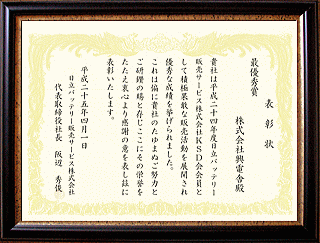 表彰状
最優秀賞
株式会社興電舎殿
貴社は平成二十四年度日立バッテリー
販売サービス株式会社KSD会会員と
して積極果敢な販売活動を展開され
優秀な成績を挙げられました。
これは偏に貴社のたゆまぬご努力と
ご研鑽の賜と存じここにその栄誉を
たたえ衷心より感謝の意を表し茲に
表彰いたします。
平成二十五年四月一日
日立バッテリー販売サービス株式会社
代表取締役社長 阪辺 秀俊